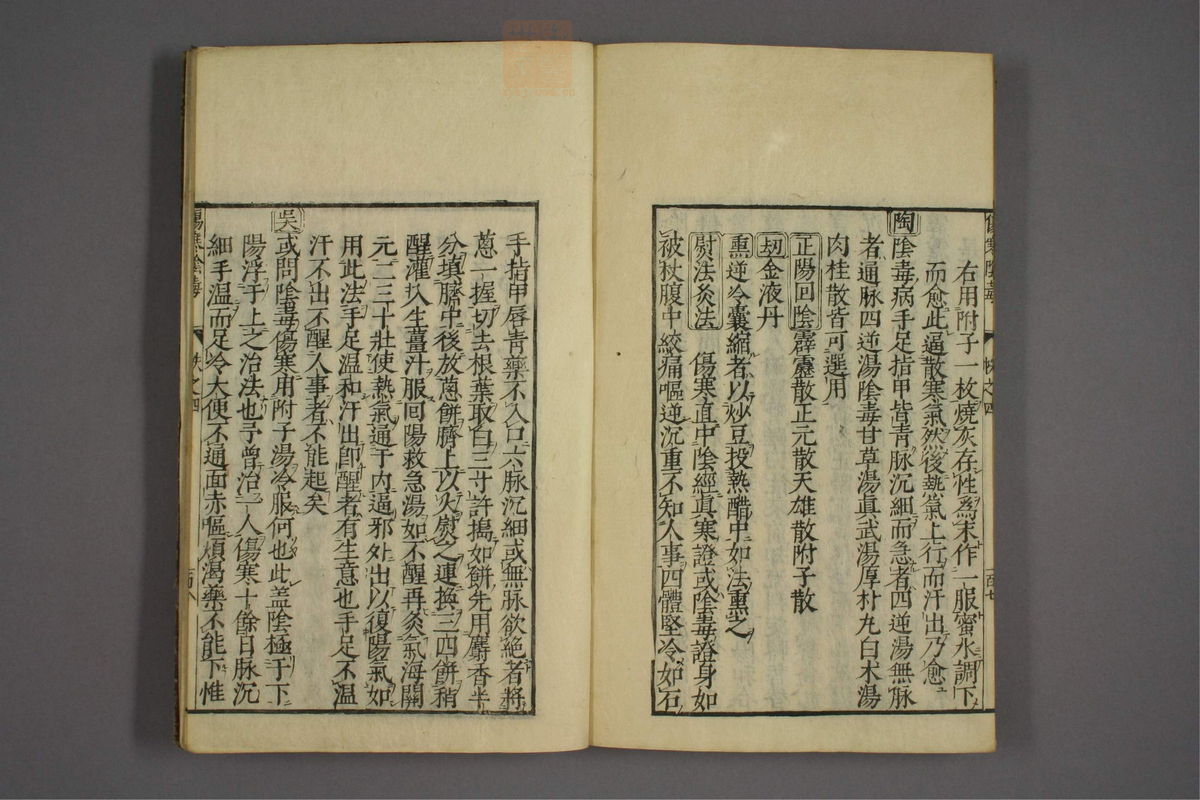 傷寒陰毒
帙之四
百七
右用附子一枚燒灰存性爲末作一服蜜水調下
而愈此逼散寒氣然後熱氣上行而汗出乃愈
陶陰毒病手足指甲皆青脉沉細而急者四逆湯無脉
者通脉四逆湯陰毒甘草湯眞武湯厚朴丸白术湯
肉桂散皆可選用
正陽回陰霹靂散正元散天雄散附子散
刼金液丹
熏逆冷囊縮者以炒豆投熱醋中如法熏之
熨法灸法傷寒直中陰經眞寒證或陰毒證身如
被杖腹中絞痛嘔逆沉重不知人事四體堅冷如石
手指甲唇青藥不入口六脉沉細或無脉欲絶者將
葱一握切去根葉取白三寸許搗如餅先用麝香半
分填臍中後放葱餅臍上以火熨之連換三四餅稍
醒灌扖生薑汁服回陽救急湯如不醒再灸氣海關
元二三十壯使熱氣通于内逼邪处出以復陽氣如
用此法手足温和汗出卽醒者有生意也手足不温
汗不出不醒人事者不能起矣
吳或問陰毒傷寒用附子湯冷服何也此盖陰極于下
陽浮于上之治法也予曾治一人傷寒十餘日脉沉
細手温而足冷大便不通面赤嘔煩渴藥不能下惟
傷寒陰毒
帙之四
百八